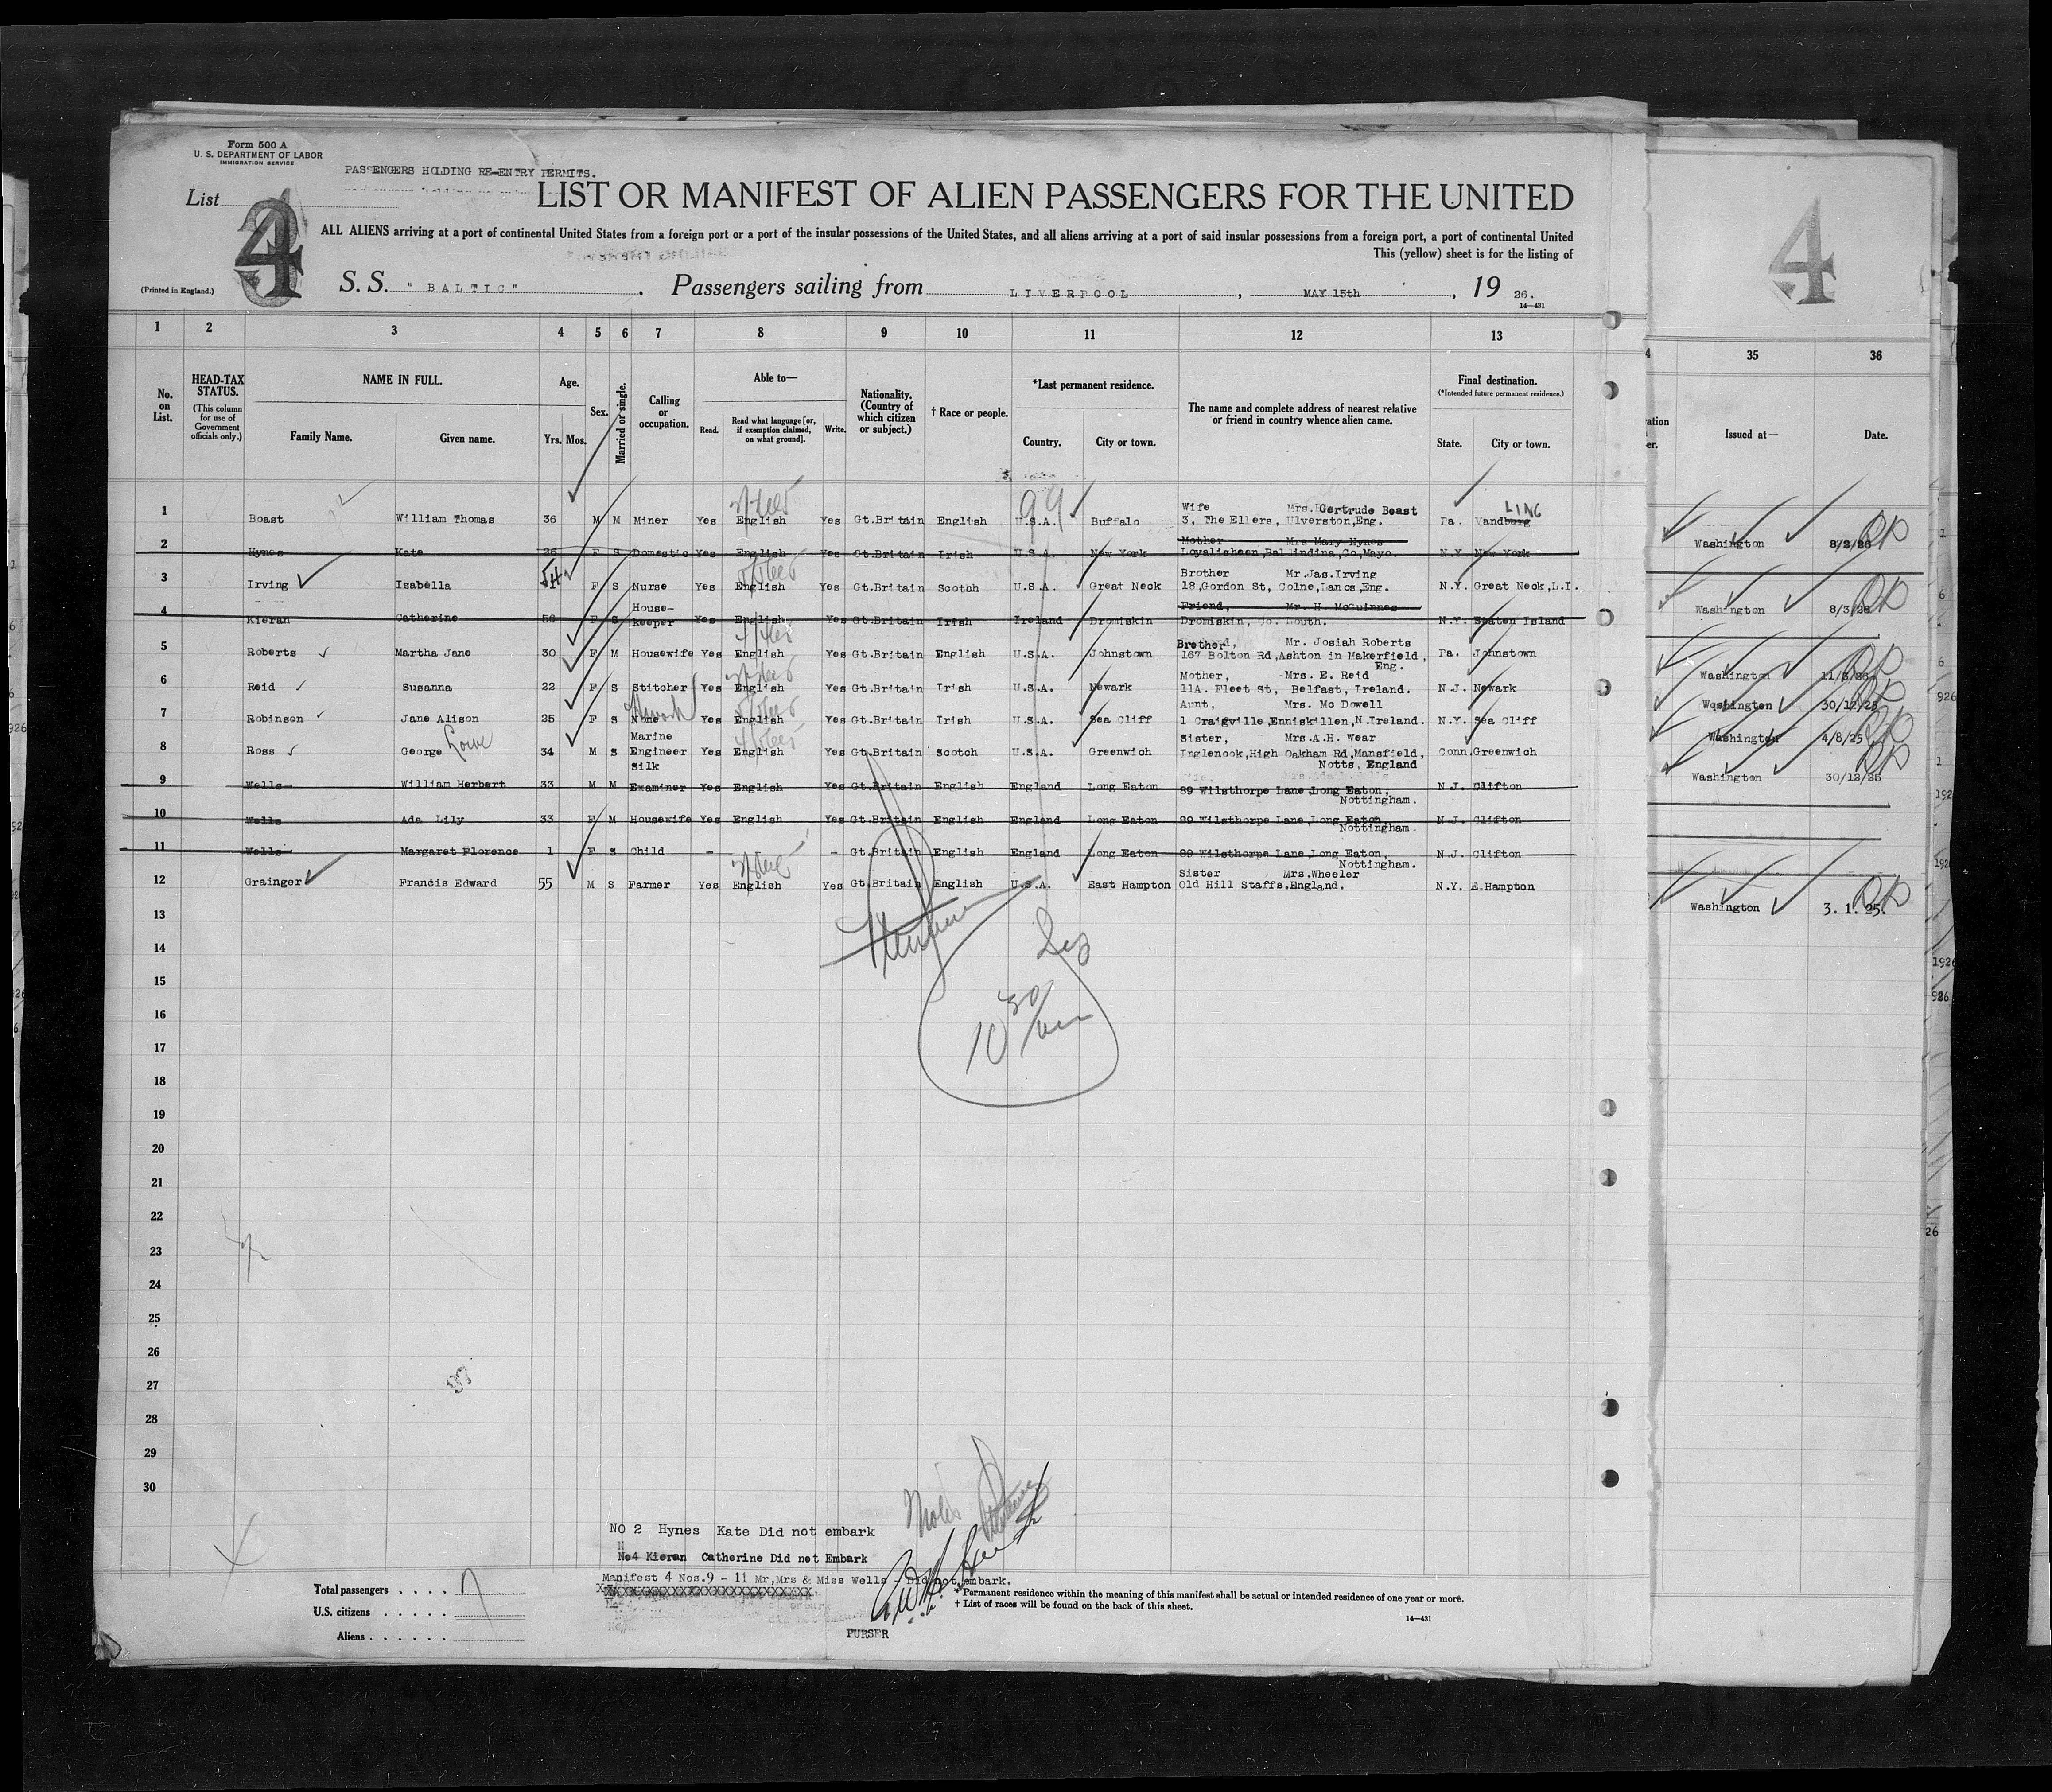 Form 500 A
U. S. DEPARTMENT OF LABOR
IMMIGRATION SERVICE
PASSENGERS HOLDING RE-ENTRY PERMITS.
List 4
LIST OR MANIFEST OF ALIEN PASSENGERS FOR THE UNITED
ALL ALIENS arriving at a port of continental United States from a foreign port or a port of the insular possessions of the United States, and all aliens arriving at a port of said insular possessions from a foreign port, a port of continental United
This (yellow) sheet is for the listing of
(Printed in England.)
S. S. "BALTIC" Passengers sailing from LIVERPOOL, MAY 15th, 19 26.
14—431
4
1 2 3 4 5 6 7 8 9 10 11 12 13 35 36
No. on List.
HEAD-TAX STATUS.
(This column for use of Government officials only.)
NAME IN FULL.
Family Name. Given name.
Age.
Yrs. Mos.
Sex.
Married or single.
Calling or occupation.
Able to—
Read. Read what language [or, if exemption claimed, on what ground]. Write.
Nationality. (Country of which citizen or subject.)
† Race or people.
*Last permanent residence.
Country. City or town.
The name and complete address of nearest relative or friend in country whence alien came.
Final destination.
(*Intended future permanent residence.)
State. City or town.
Issued at— Date.
99
Wife Mrs. Gertrude Boast LING
1 Boast William Thomas 36 M M Miner Yes English Yes Gt.Britain English U.S.A. Buffalo 3, The Ellers, Ulverston,Eng. Pa. Vandburg
Mother Mrs Mary Hynes
2 Hynes Kate 26 F S Domestic Yes English Yes Gt.Britain Irish U.S.A. New York Loyalisheen,Ballindina,Co,Mayo. N.Y. New York Washington 8/2/26
Brother Mr.Jas.Irving
3 Irving Isabella F S Nurse Yes English Yes Gt.Britain Scotch U.S.A. Great Neck 18,Gordon St, Colne,Lancs,Eng. N.Y. Great Neck,L.I.
House- Friend, Mr. H. McGuinnes Washington 8/3/26
4 Kieran Catherine 56 F S keeper Yes English Yes Gt.Britain Irish Ireland Dromiskin Dromiskin, Co. Louth. N.Y. Staten Island
Brother, Mr. Josiah Roberts
5 Roberts Martha Jane 30 F M Housewife Yes English Yes Gt.Britain English U.S.A. Johnstown 167 Bolton Rd,Ashton in Makerfield, Pa. Johnstown
Eng.
Mother, Mrs. E. Reid Washington
6 Reid Susanna 22 F S Stitcher Yes English Yes Gt.Britain Irish U.S.A. Newark 11A. Fleet St, Belfast, Ireland. N.J. Newark
Aunt, Mrs. Mc Dowell Washington 30/12/25
7 Robinson Jane Alison 25 F S None Yes English Yes Gt.Britain Irish U.S.A. Sea Cliff 1 Craigville,Enniskillen,N.Ireland. N.Y. Sea Cliff
Marine Sister, Mrs.A.H. Wear Washington 4/8/25
8 Ross George Lowe 34 M S Engineer Yes English Yes Gt.Britain Scotch U.S.A. Greenwich Inglenook,High Oakham Rd,Mansfield, Conn. Greenwich
Silk Notts, England Washington 30/12/25
9 Wells William Herbert 33 M M Examiner Yes English Yes Gt.Britain English England Long Eaton 89 Wilsthorpe Lane,Long Eaton, N.J. Clifton
Nottingham.
10 Wells Ada Lily 33 F M Housewife Yes English Yes Gt.Britain English England Long Eaton 89 Wilsthorpe Lane,Long Eaton N.J. Clifton
Nottingham.
11 Wells Margaret Florence 1 F S Child - - - Gt.Britain English England Long Eaton 89 Wilsthorpe Lane,Long Eaton, N.J. Clifton
Nottingham.
Sister Mrs.Wheeler
12 Grainger Francis Edward 55 M S Farmer Yes English Yes Gt.Britain English U.S.A. East Hampton Old Hill Staffs,England. N.Y. E.Hampton
Washington 3. 1. 25.
13
14
15
16
10 30
17
18
19
20
21
22
23
24
25
26
27
28
29
30
NO 2 Hynes Kate Did not embark
No4 Kieran Catherine Did not Embark
Manifest 4 Nos.9 - 11 Mr,Mrs & Miss Wells - Did not embark.
Total passengers 7
U.S. citizens
Aliens
* Permanent residence within the meaning of this manifest shall be actual or intended residence of one year or more.
† List of races will be found on the back of this sheet.
14—431
PURSER